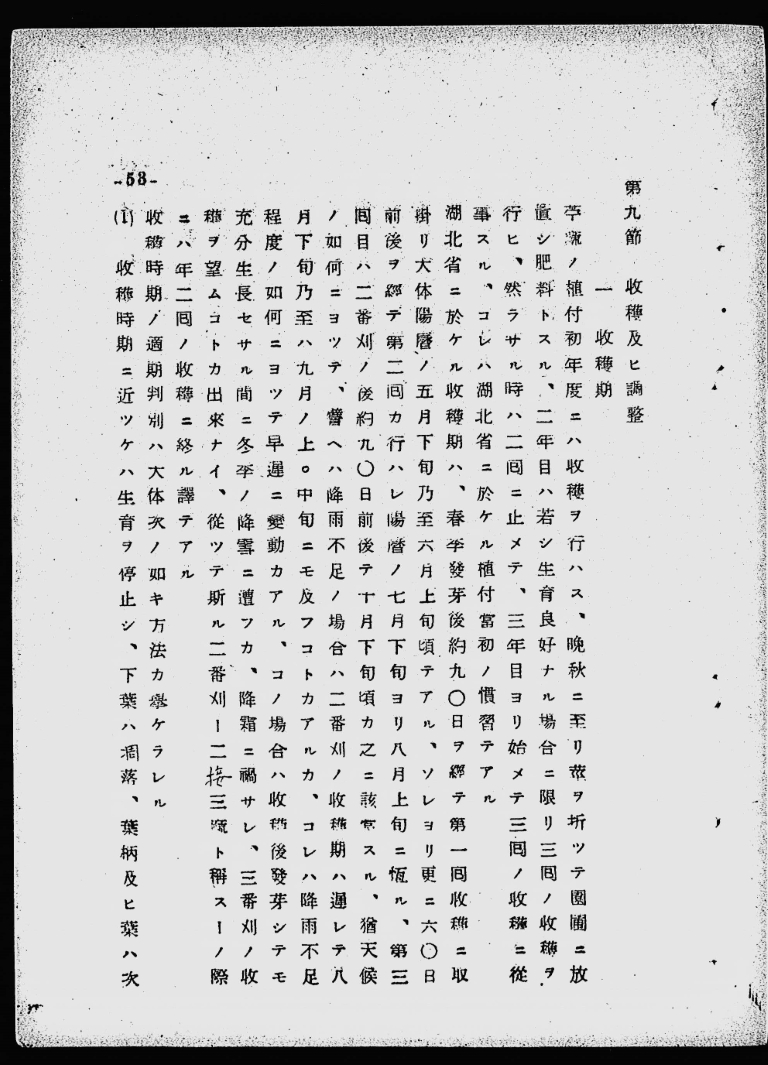 第九節　收穫及ヒ調整
一　收穫期
苧蔴ノ植付初年度ニハ收穫ヲ行ハス、晩秋ニ至リ莖ヲ折ツテ園圃ニ放
置シ肥料トスル、二年目ハ若シ生育良好ナル場合ニ限リ三囘ノ收穫ヲ
行ヒ、然ラサル時ハ二囘ニ止メテ、三年目ヨリ始メテ三囘ノ收穫ニ從
事スル、コレハ湖北省ニ於ケル植付當初ノ慣習テアル
湖北省ニ於ケル收穫期ハ、春季發芽後約九〇日ヲ經テ第一囘收穫ニ取
掛リ大体陽曆ノ五月下旬乃至六月上旬頃テアル、ソレヨリ更ニ六〇日
前後ヲ經テ第二囘カ行ハレ陽曆ノ七月下旬ヨリ八月上旬ニ恆ル、第三
囘目ハ二番刈ノ後約九〇日前後テ十月下旬頃カ之ニ該當スル、猶天候
ノ如何ニヨツテ、譬ヘハ降雨不足ノ場合ハ二番刈ノ收穫期ハ遲レテ八
月下旬乃至ハ九月ノ上。中旬ニモ及フコトカアルカ、コレハ降雨不足
程度ノ如何ニヨツテ早遲ニ變動カアル、コノ場合ハ收穫後發芽シテモ
充分生長セサル間ニ冬季ノ降雪ニ遭ツカ、降霜ニ禍サレ、三番刈ノ收
穫ヲ望ムコトカ出來ナイ、從ツテ斯ル二番刈ー二接三蔴ト稱スーノ際
ニハ年二囘ノ收穫ニ終ル譯テアル
收穫時期ノ適期判別ハ大体次ノ如キ方法カ擧ケラレル
(1)　收穫時期ニ近ツケハ生育ヲ停止シ、下葉ハ凋落、葉柄及ヒ葉ハ次
-53-